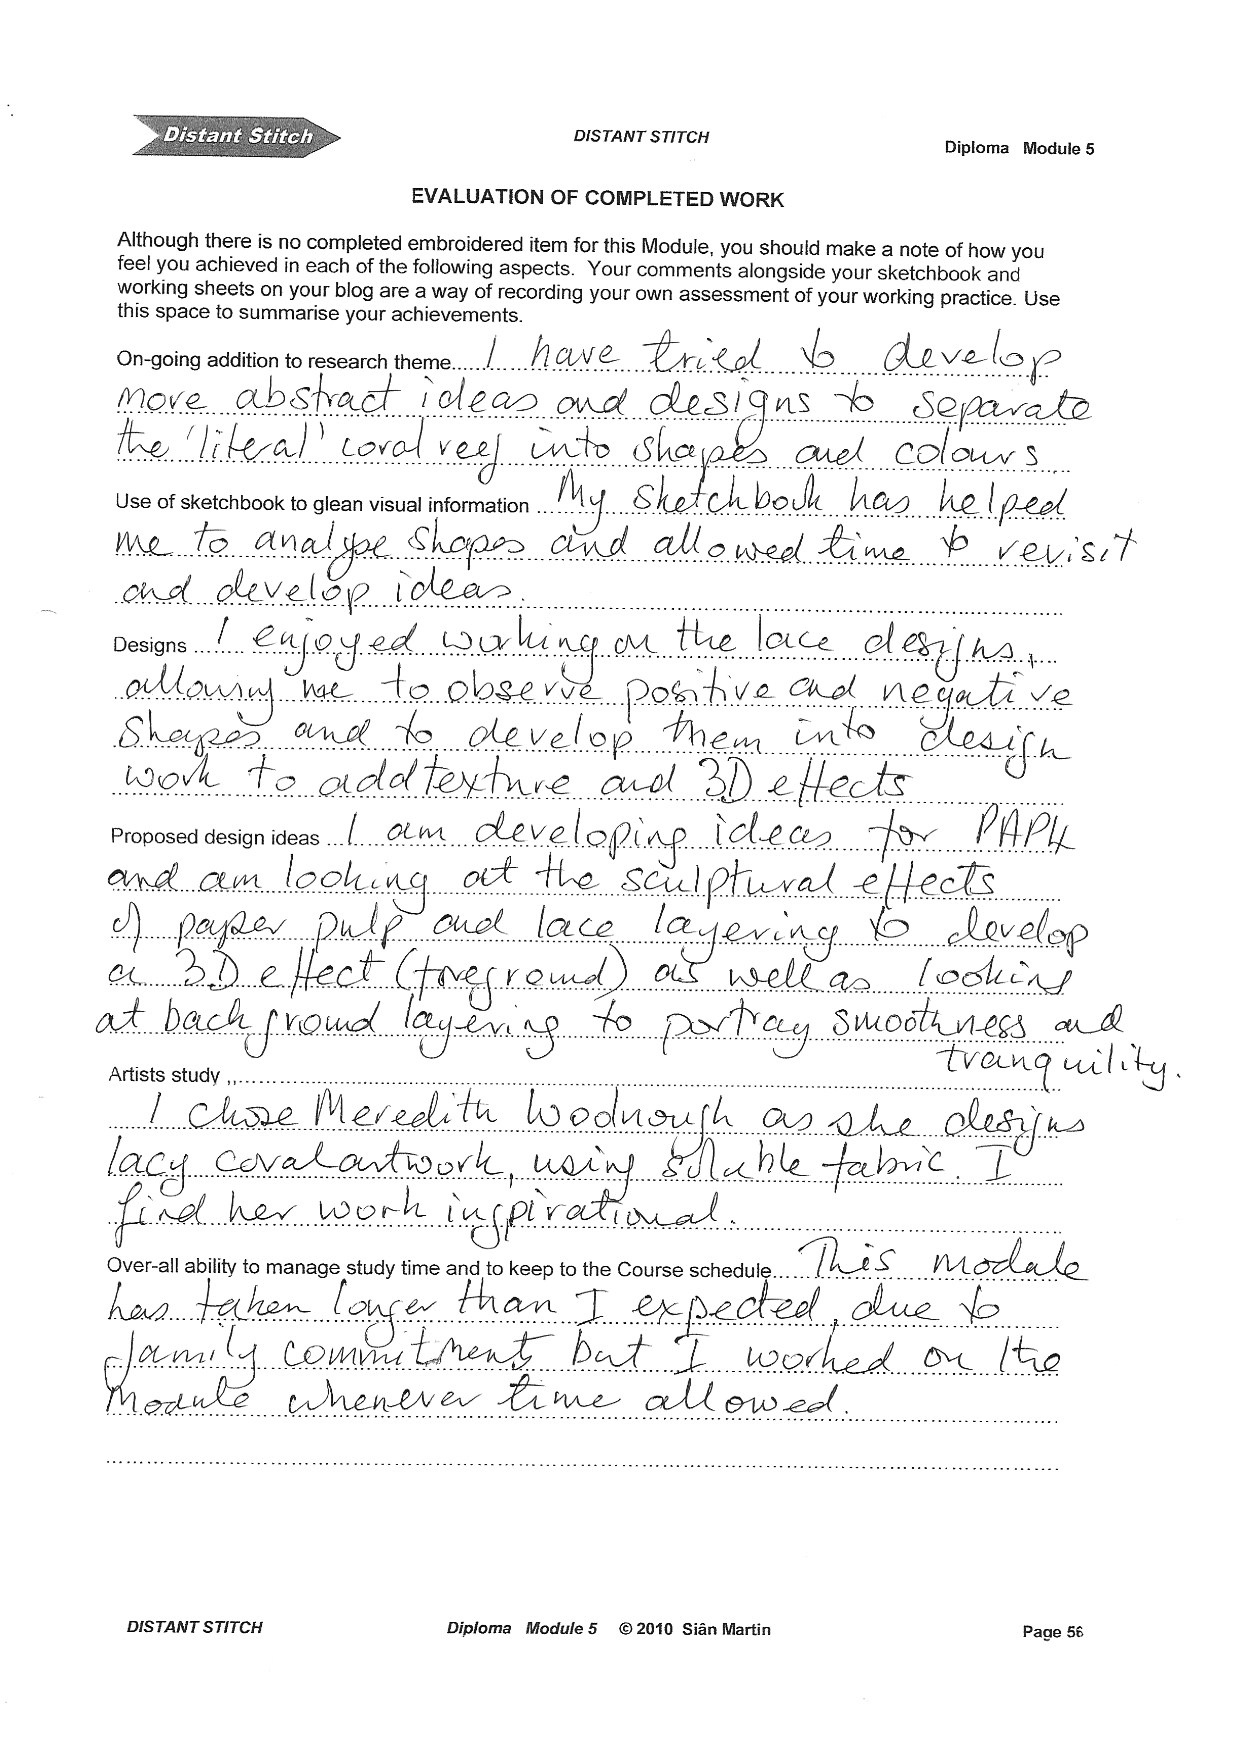 Distant Stitch
DISTANT STITCH
Diploma Module 5
EVALUATION OF COMPLETED WORK
Although there is no completed embroidered item for this Module, you should make a note of how you
feel you achieved in each of the following aspects. Your comments alongside your sketchbook and
working sheets on your blog are a way of recording your own assessment of your working practice. Use
this space to summarise your achievements.
On-going addition to research theme..... I have tried to develop
more abstract ideas and designs to separate
the 'literal' coral reef into shapes and colours
Use of sketchbook to glean visual information ... My sketchbook has helped
me to analyse shapes and allowed time to revisit
and develop ideas.
Designs ... I enjoyed working on the lace designs,
allowing me to observe positive and negative
shapes and to develop them into design
work to add texture and 3D effects
Proposed design ideas ... I am developing ideas for PAP4
and am looking at the sculptural effects
of paper pulp and lace layering to develop
a 3D effect (foreground) as well as looking
at background layering to portray smoothness and
tranquility.
Artists study ,,
I chose Meredith Woodnough as she designs
lacy coral artwork, using soluble fabric. I
find her work inspirational.
Over-all ability to manage study time and to keep to the Course schedule..... This module
has taken longer than I expected, due to
family commitments but I worked on the
module whenever time allowed.
DISTANT STITCH Diploma Module 5 © 2010 Siân Martin Page 56